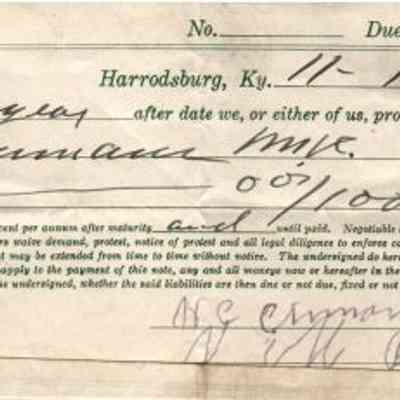 No. Due
Harrodsburg, Ky. 11-1
year after date we, or either of us, pro
00/100
cent per annum after maturity and until paid. Negotiable
rs waive demand, protest, notice of protest and all legal diligence to enforce co
t may be extended from time to time without notice. The undersigned do here
apply to the payment of this note, any and all moneys now or hereafter in the
e undersigned, whether the said liabilities are then due or not due, fixed or not
H C